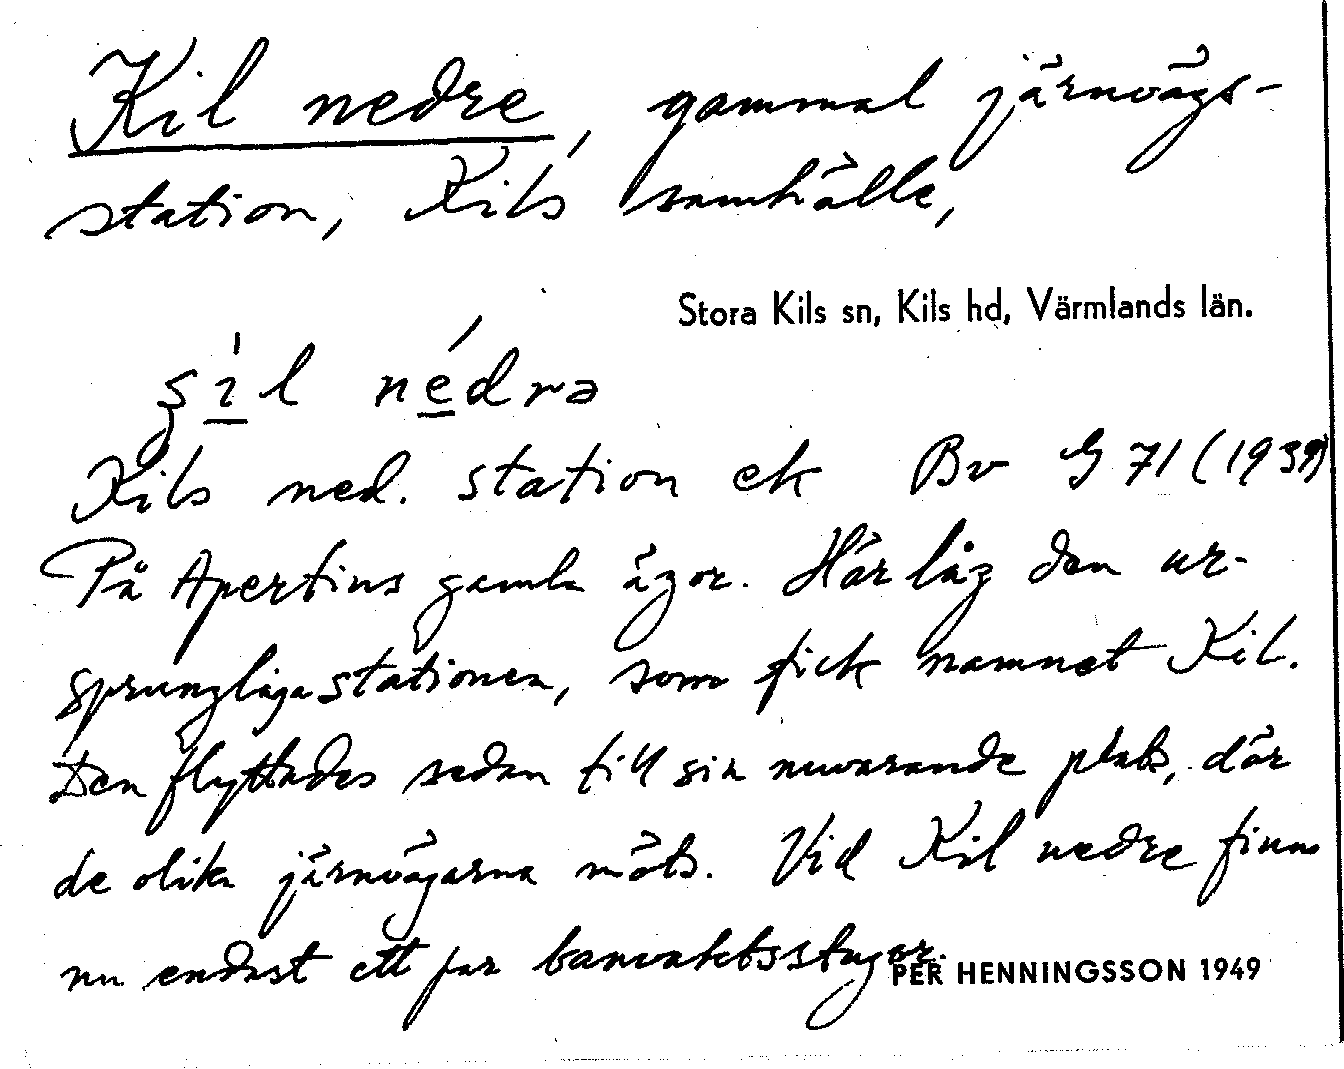 Kil nedre, gammal järnvägs-
station, Kils samhälle,
Stora Kils sn, Kils hd, Värmlands län.
nédrə
Kils ned. station ek Bv G 71 (1939)
På Apertins gamla ägor. Här låg den ur-
sprungliga stationen, som fick namnet Kil.
Den flyttades sedan till sin nuvarande plats, där
de olika järnvägarna möts. Vid Kil nedre finns
nu endast ett par banvaktsstugor.
PER HENNINGSSON 1949